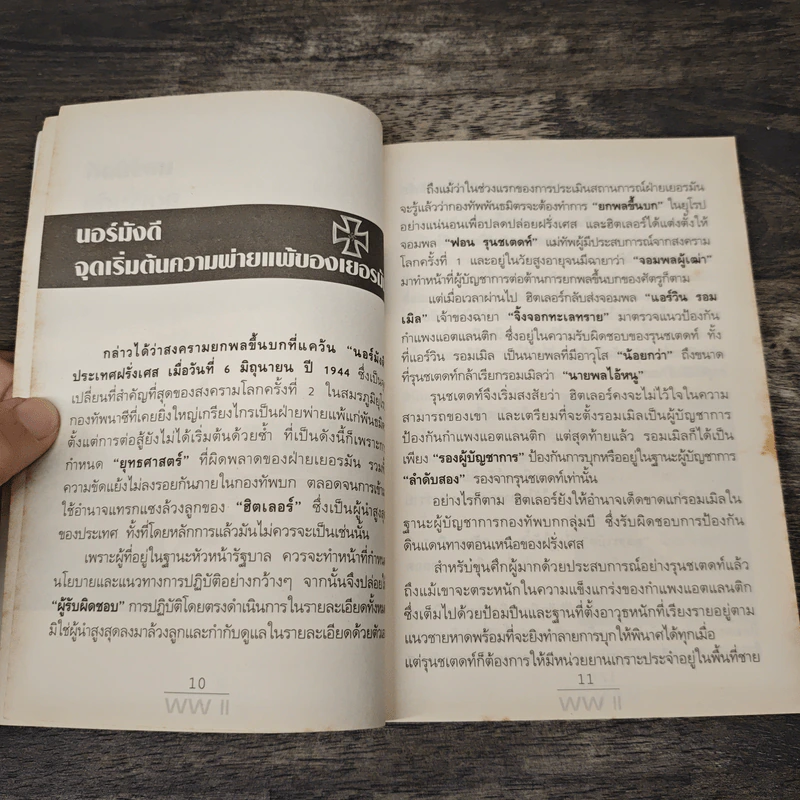 นอร์มังดี
จุดเริ่มต้นความพ่ายแพ้ของเยอรมัน
กล่าวได้ว่าสงครามยกพลขึ้นบกที่แคว้น "นอร์มังดี
ประเทศฝรั่งเศส เมื่อวันที่ 6 มิถุนายน ปี 1944 ซึ่งเป็น
เปลี่ยนที่สำคัญที่สุดของสงครามโลกครั้งที่ 2 ในสมรภูมิยุโ
กองทัพนาซีที่เคยยิ่งใหญ่เกรียงไกรเป็นฝ่ายพ่ายแพ้แก่พันธมิ
ตั้งแต่การต่อสู้ยังไม่ได้เริ่มต้นด้วยซ้ำ ที่เป็นดังนี้ก็เพราะกา
กำหนด "ยุทธศาสตร์" ที่ผิดพลาดของฝ่ายเยอรมัน รวมทั้
ความขัดแย้งไม่ลงรอยกันภายในกองทัพบก ตลอดจนการเข้าม
ใช้อำนาจแทรกแซงล้วงลูกของ "ฮิตเลอร์" ซึ่งเป็นผู้นำสูงสุ
ของประเทศ ทั้งที่โดยหลักการแล้วมันไม่ควรจะเป็นเช่นนั้น
เพราะผู้ที่อยู่ในฐานะหัวหน้ารัฐบาล ควรจะทำหน้าที่กำหน
นโยบายและแนวทางการปฏิบัติอย่างกว้างๆ จากนั้นจึงปล่อยใ
"ผู้รับผิดชอบ" การปฏิบัติโดยตรงดำเนินการในรายละเอียดทั้งหม
มิใช่ผู้นำสูงสุดลงมาล้วงลูกและกำกับดูแลในรายละเอียดด้วยตัวเอ
10
WW II
ถึงแม้ว่าในช่วงแรกของการประเมินสถานการณ์ฝ่ายเยอรมัน
จะรู้แล้วว่ากองทัพพันธมิตรจะต้องทำการ "ยกพลขึ้นบก" ในยุโรป
อย่างแน่นอนเพื่อปลดปล่อยฝรั่งเศส และฮิตเลอร์ได้แต่งตั้งให้
จอมพล "ฟอน รุนชเตดท์" แม่ทัพผู้มีประสบการณ์จากสงคราม
โลกครั้งที่ 1 และอยู่ในวัยสูงอายุจนมีฉายาว่า "จอมพลผู้เฒ่า"
มาทำหน้าที่ผู้บัญชาการต่อต้านการยกพลขึ้นบกของศัตรูก็ตาม
แต่เมื่อเวลาผ่านไป ฮิตเลอร์กลับส่งจอมพล "แอร์วิน รอม
เมิล" เจ้าของฉายา "จิ้งจอกทะเลทราย" มาตรวจแนวป้องกัน
กำแพงแอตแลนติก ซึ่งอยู่ในความรับผิดชอบของรุนชเตดท์ ทั้ง
ที่แอร์วิน รอมเมิล เป็นนายพลที่มีอาวุโส "น้อยกว่า" ถึงขนาด
ที่รุนชเตดท์กล้าเรียกรอมเมิลว่า "นายพลไอ้หนู"
รุนชเตดท์จึงเริ่มสงสัยว่า ฮิตเลอร์คงจะไม่ไว้ใจในความ
สามารถของเขา และเตรียมที่จะตั้งรอมเมิลเป็นผู้บัญชาการ
ป้องกันกำแพงแอตแลนติก แต่สุดท้ายแล้ว รอมเมิลก็ได้เป็น
เพียง "รองผู้บัญชาการ" ป้องกันการบุกหรืออยู่ในฐานะผู้บัญชาการ
"ลำดับสอง" รองจากรุนชเตดท์เท่านั้น
อย่างไรก็ตาม ฮิตเลอร์ยังให้อำนาจเด็ดขาดแก่รอมเมิลใน
ฐานะผู้บัญชาการกองทัพบกกลุ่มบี ซึ่งรับผิดชอบการป้องกัน
ดินแดนทางตอนเหนือของฝรั่งเศส
สำหรับขุนศึกผู้มากด้วยประสบการณ์อย่างรุนชเตดท์แล้ว
ถึงแม้เขาจะตระหนักในความแข็งแกร่งของกำแพงแอตแลนติก
ซึ่งเต็มไปด้วยป้อมปืนและฐานที่ตั้งอาวุธหนักที่เรียงรายอยู่ตาม
แนวชายหาดพร้อมที่จะยิงทำลายการบุกให้พินาศได้ทุกเมื่อ
แต่รุนชเตดท์ก็ต้องการให้มีหน่วยยานเกราะประจำอยู่ในพื้นที่ชาย
11
WW II